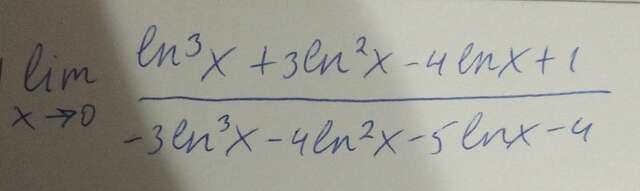 lim x→0 (ln³x + 3ln²x - 4lnx + 1) / (-3ln³x - 4ln²x - 5lnx - 4)